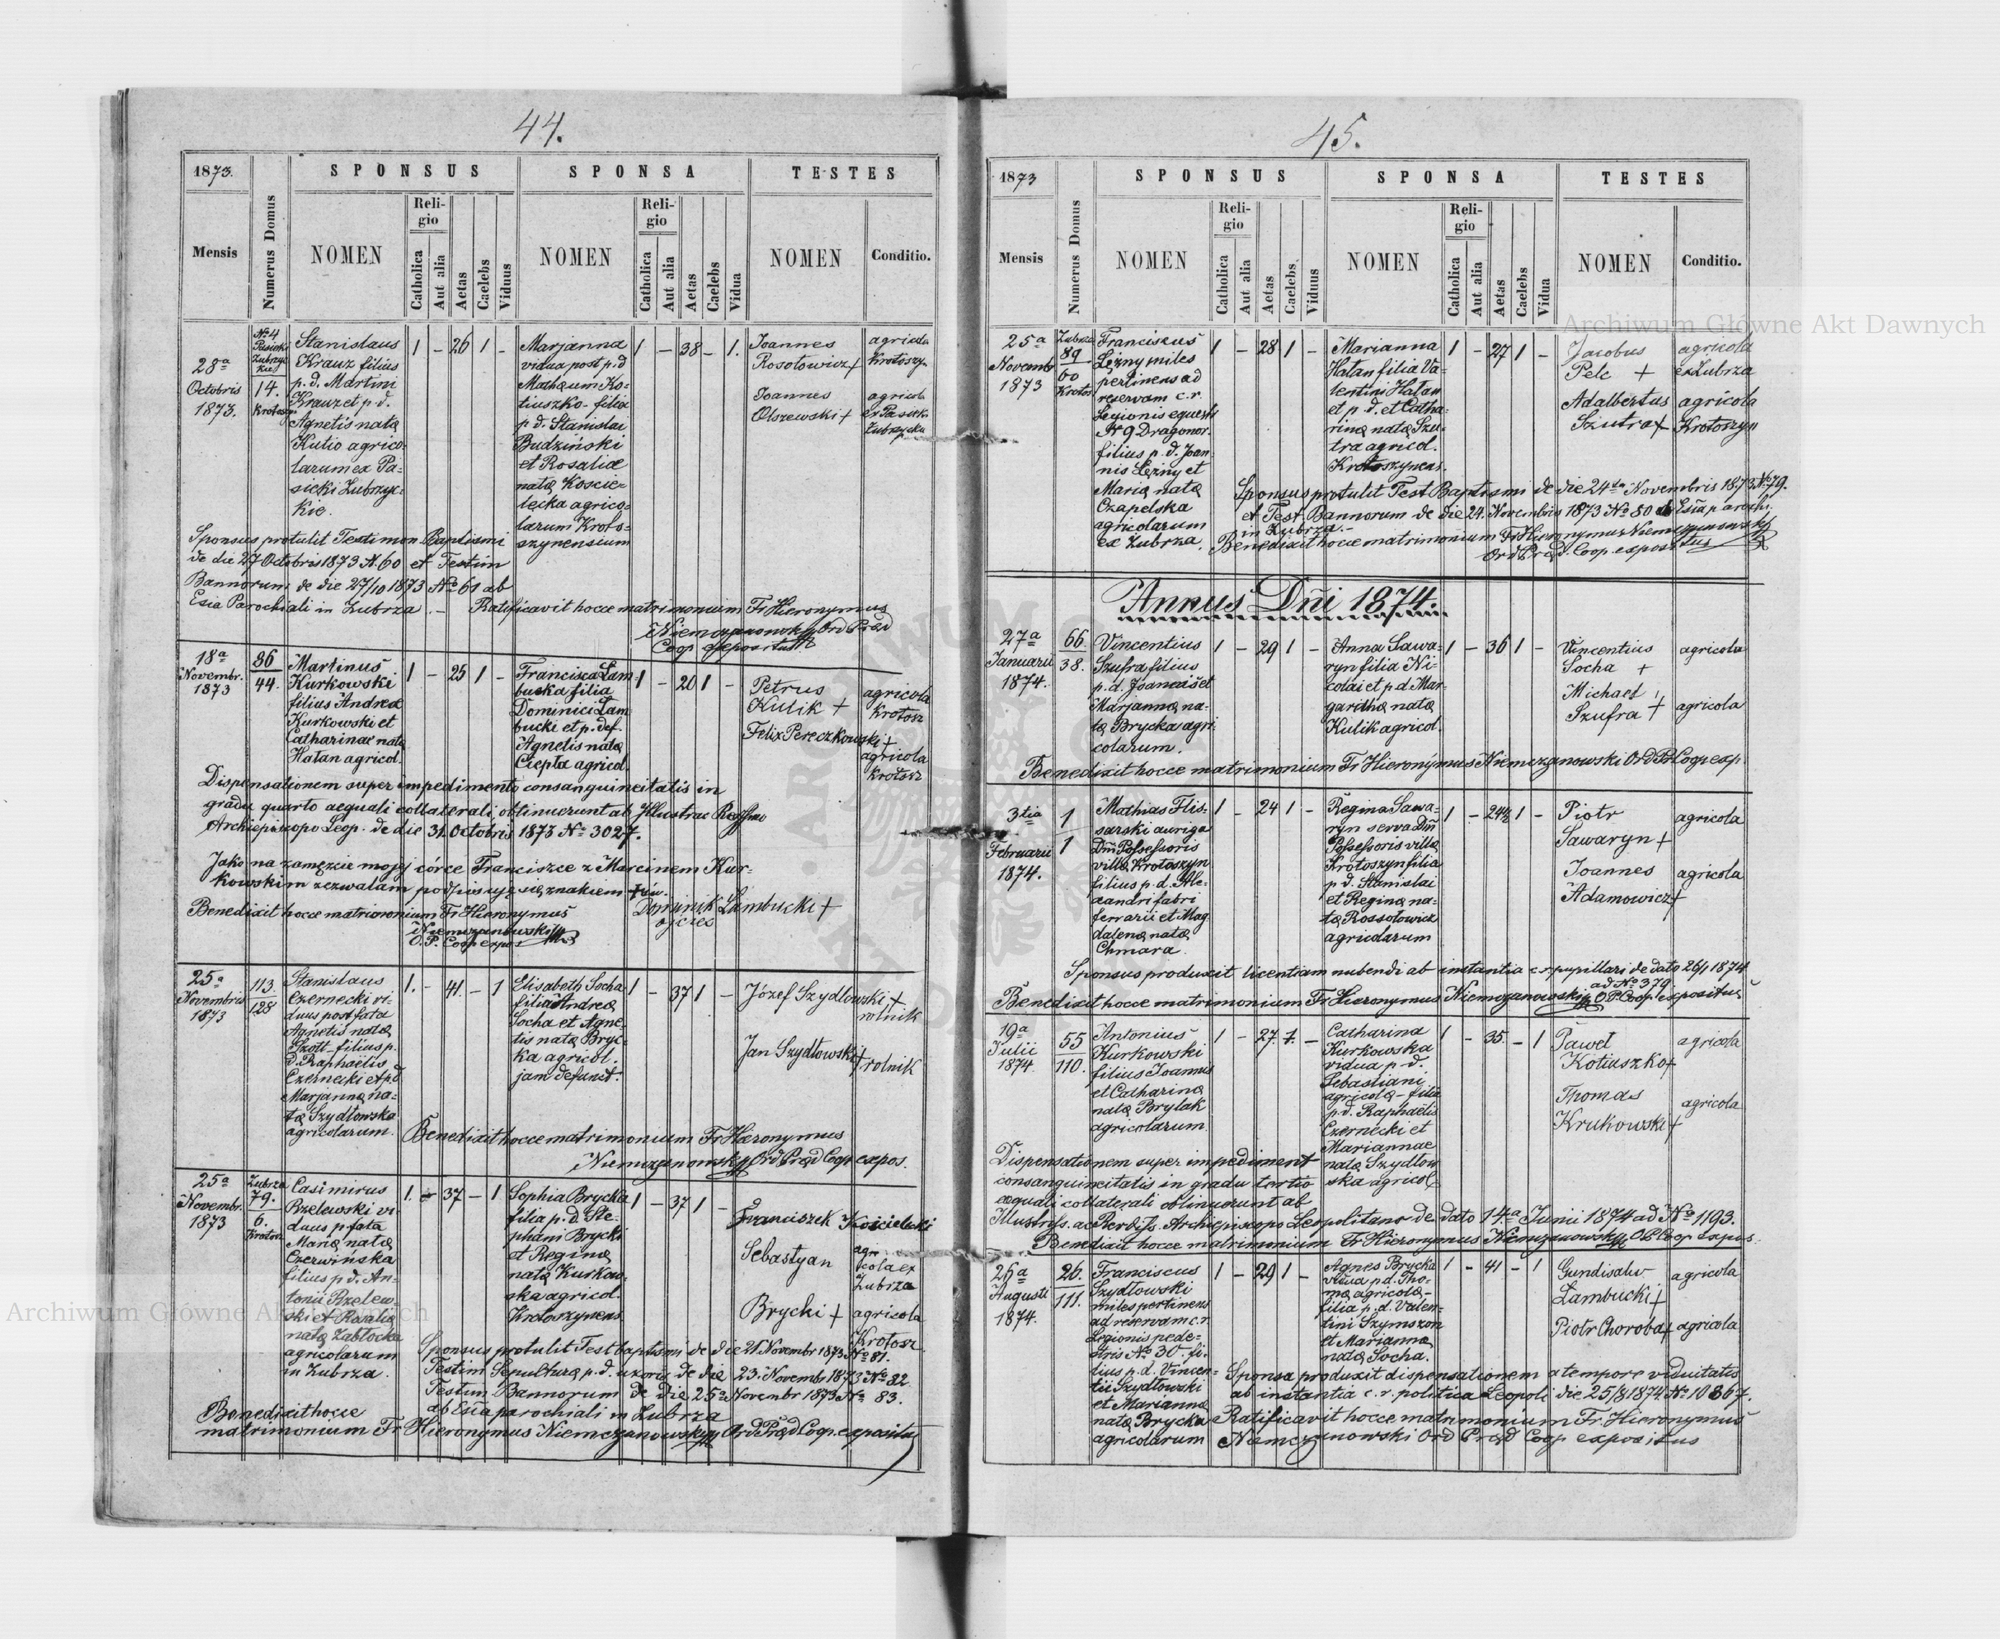 44.
1873.
SPONSUS
SPONSA
TESTES
Mensis
Numerus Domus
NOMEN
Religio
Catholica
Aut alia
Aetas
Caelebs
Viduus
NOMEN
Religio
Catholica
Aut alia
Aetas
Caelebs
Vidua
NOMEN
Conditio.
28a
Octobris
1873.
14.
Stanislaus
Krauz filius
p. d. Martini
Krauz et p d.
Agnetis natą
Kutio agrico-
larum ex Pa-
sieki Zubrzyc-
kie.
1 – 26 1 –
Marjanna
vidua post p. d
Mathæum Ko-
tiuszko - filia
p d. Stanislai
Budziński
et Rosaliæ
natą Koście-
lecka agrico-
larum Kroto-
szynensium
1 – 38 – 1.
Joannes
Rosołowicz +
agricola
Krotoszyn
Joannes
Olszewski +
agricola
ex Pasieki
Zubrzycki
Sponsus protulit Testimon Baptismi
de die 27 Octobris 1873 N. 60 et Testim
Bannorum de die 27/10 1873 No 61 ab
Esia Parochiali in Zubrza. – Ratificavit hocce matrimonium Fr Hieronymus
Niemczanowski Ord Præd
Coop expositus
18a
Novembr.
1873
36
44.
Martinus
Kurkowski
filius Andreæ
Kurkowski et
Catharinae natą
Hatan agricol.
1 – 25 1 –
Francisca Łam-
bucka filia
Dominici Łam
bucki et p. def.
Agnetis natą
Ciepła agricol.
1 – 20 1 –
Petrus
Kulik +
agricola
Krotosz
Felix Pereczkowski +
agricola
Krotosz
Dispensationem super impedimento consanguineitatis in
gradu quarto aequali collaterali obtinuerunt ab Illustrac
Archiepiscopo Leop. de die 31 Octobris 1873 No 3027.
Jako na zamęzcie mojej córce Franciszce z Marcinem Kur-
kowskim zezwalam podpisuję się znakiem +
Dominik Łambucki +
ojciec
Benedixit hocce matrimonium Fr Hieronymus
Niemczanowski
O. P. Coop expos
25a
Novembris
1873
113.
128
Stanislaus
Czernecki vi-
duus post fata
Agnetis natą
Szott - filius p.
d. Raphaelis
Czernecki et p d
Marjanną na-
tą Szydłowska
agricolarum.
1. – 41. – 1
Elisabeth Socha
filia Andreą
Socha et Agne-
tis natą Bryc-
ka agricol.
jam defunct.
1 – 37 1 –
Józef Szydłowski +
rolnik
Jan Szydłowski +
rolnik
Benedixit hocce matrimonium Fr Hieronymus
Niemczanowski Ord Præd Coop expos.
25a
Novembr.
1873
Zubrza
79.
6.
Casimirus
Bzelewski vi-
duus p. fata
Marią natą
Czerwińska
filius p d. An-
tonii Bzelew-
ski et Rosalią
natą Zabłocka
agricolarum
in Zubrza.
1. – 37 – 1
Sophia Brycka
filia p. d. Ste-
phani Brycki
et Reginą
natą Kurkow-
ska agricol.
Krotoszynens
1 – 37 1 –
Franciszek Kościelecki
Sebastyan
agri
cola ex
Zubrza
Brycki +
agricola
Krotosz
Sponsus protulit Test baptismi de die 21 Novembr 1873 No 81.
Testim Sepulturą p. d. uxoris de die 23. Novembr 1873 No 82
Testim Bannorum de die 25a Novembr 1873 No 83.
ab Esia parochiali in Zubrza
Benedixit hocce
matrimonium Fr Hieronymus Niemczanowski Ord Præd Coop. expositus
45.
1873
SPONSUS
SPONSA
TESTES
Mensis
Numerus Domus
NOMEN
Religio
Catholica
Aut alia
Aetas
Caelebs
Viduus
NOMEN
Religio
Catholica
Aut alia
Aetas
Caelebs
Vidua
NOMEN
Conditio.
25a
Novembr
1873
Zubrza
89
60
Krotosz
Franciskus
Leżny miles
pertinens ad
reservam c. r.
Legionis equestr
N 9 Dragonor.
filius p. d. Joan-
nis Leżny et
Marią natą
Czapelska
agricolarum
ex Zubrza.
1 – 28 1 –
Marianna
Hatan filia Va-
lentini Hatan
et p d. et Catha-
riną natą Szu-
tra agricol.
Krotoszynens.
1 – 27 1 –
Jacobus
Pelc +
agricola
ex Zubrza
Adalbertus
Szutra +
agricola
Krotoszyn
Sponsus protulit Test Baptismi de die 24ta Novembris 1873 No 79.
et Test. Bannorum de die 24. Novembris 1873 No 80 ab Esia parochi.
in Zubrza. –
Benedixit hocce matrimonium Fr Hieronymus Niemczanowski
Ord Præd. Coop. expositus
Annus Dñi 1874.
27a
Januarii
1874.
66
38.
Vincentius
Szufra filius
p. d. Joannis et
Marjanną na-
tą Brycka agri-
colarum.
1 – 29 1 –
Anna Sawa-
ryn filia Ni-
colai et p d Mar-
garithą natą
Kulik agricol.
1 – 36 1 –
Vincentius
Socha +
agricola
Michael
Szufra +
agricola
Benedixit hocce matrimonium Fr Hieronymus Niemczanowski Ord Pr Coop exp.
3tia
Februarii
1874.
1
1
Mathias Flis-
sarski auriga
Dni Possessoris
villą Krotoszyn
filius p. d. Ale-
xandri fabri
ferrarii et Mag
daleną natą
Chmara.
1 – 24 1 –
Regina Sawa-
ryn serva Dñi
Possessoris villą
Krotoszyn filia
p d. Stanislai
et Reginą na-
tą Rossołowicz
agricolarum
1 – 24½ 1 –
Piotr
Sawaryn +
agricola
Joannes
Adamowicz +
agricola
Sponsus produxit licentiam nubendi ab instantia c. r. pupillari de dato 26/1 1874
ad No 379.
Benedixit hocce matrimonium Fr Hieronymus Niemczanowski O. P. Coop expositus
19a
Julii
1874
55
110.
Antonius
Kurkowski
filius Joannis
et Catharina
natą Brylak
agricolarum.
1 – 27 1. –
Catharina
Kurkowska
vidua p. d.
Sebastiani
agricolą - filia
p. d. Raphaelis
Czernecki et
Mariannae
natą Szydłow
ska agricol
1 – 35 – 1
Paweł
Kotiuszko +
agricola
Thomas
Krukowski +
agricola
Dispensationem super impediment
consanguineitatis in gradu tertio
æquali collaterali obtinuerunt ab
Illustriss. ac Rerdiss. Archiepiscopo Leopolitano de dato 14a Junii 1874 ad No 1193.
Benedixit hocce matrimonium Fr Hieronymus Niemczanowski O P Coop expos.
26a
Augusti
1874.
26.
111.
Franciscus
Szydłowski
miles pertinens
ad reservam c. r.
Legionis pede-
stris No 30. fi-
lius p. d. Vincen-
tii Szydłowski
et Marianną
natą Brycka
agricolarum
1 – 29 1 –
Agnes Brycka
vidua p d. Tho-
mą agricolą -
filia p. d. Valen-
tini Szymszon
et Marianną
natą Socha.
1 – 41 – 1
Gundisalv
Łambucki +
agricola
Piotr Choroba +
agricola
Sponsa produxit dispensationem a tempore viduitatis
ab instantia c. r. politica Leopoli die 25/8 1874 No 10867.
Ratificavit hocce matrimonium Fr Hieronymus
Niemczanowski Ord Præd Coop expositus
Archiwum Główne Akt Dawnych
Archiwum Główne Akt Dawnych